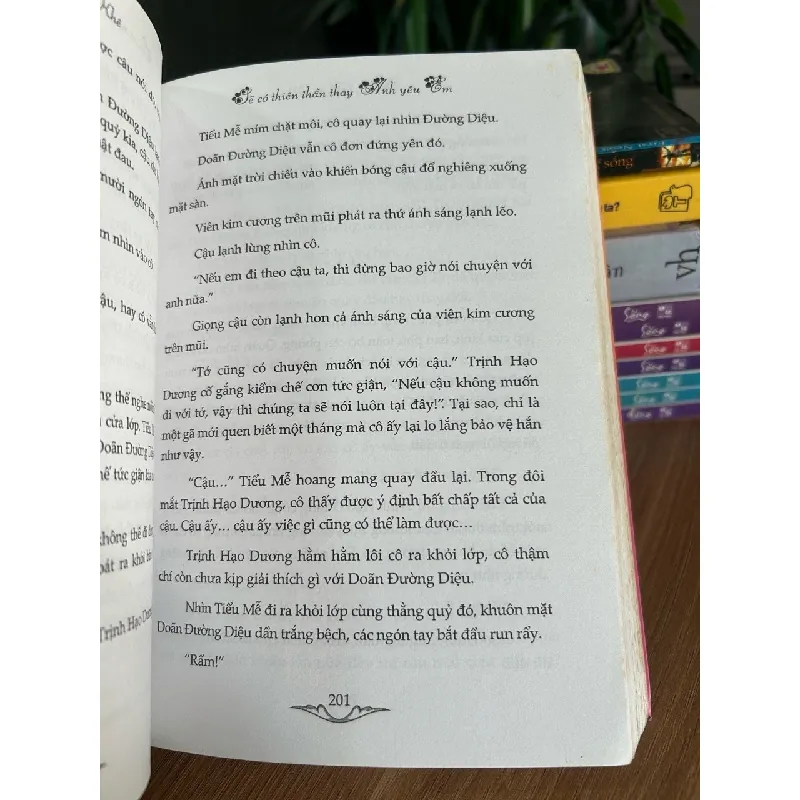 Sẽ có thiên thần thay Anh yêu Em
Tiểu Mễ mím chặt môi, cô quay lại nhìn Đường Diệu.
Doãn Đường Diệu vẫn cô đơn đứng yên đó.
Ánh mặt trời chiếu vào khiến bóng cậu đổ nghiêng xuống
mặt sàn.
Viên kim cương trên mũi phát ra thứ ánh sáng lạnh lẽo.
Cậu lạnh lùng nhìn cô.
“Nếu em đi theo cậu ta, thì đừng bao giờ nói chuyện với
anh nữa.”
Giọng cậu còn lạnh hơn cả ánh sáng của viên kim cương
trên mũi.
“Tớ cũng có chuyện muốn nói với cậu.” Trịnh Hạo
Dương cố gắng kiềm chế cơn tức giận, “Nếu cậu không muốn
đi với tớ, vậy thì chúng ta sẽ nói luôn tại đây!”. Tại sao, chỉ là
một gã mới quen biết một tháng mà cô ấy lại lo lắng bảo vệ hắn
như vậy.
“Cậu...” Tiểu Mễ hoang mang quay đầu lại. Trong đôi
mắt Trịnh Hạo Dương, cô thấy được ý định bất chấp tất cả của
cậu. Cậu ấy... cậu ấy việc gì cũng có thể làm được...
Trịnh Hạo Dương hằm hằm lôi cô ra khỏi lớp, cô thậm
chí còn chưa kịp giải thích gì với Doãn Đường Diệu.
Nhìn Tiểu Mễ đi ra khỏi lớp cùng thằng quỷ đó, khuôn mặt
Doãn Đường Diệu dần trắng bệch, các ngón tay bắt đầu run rẩy.
“Rầm!”
201
câu nói
Đường Diện
quỷ kia, cậu
đau.
người ngón tay
nhìn vào cô
hay cô
thể nghe
cửa lớp. Tiểu
Doãn Đường
tức giận
không thể đi
ra khỏi
Trịnh Hạo Dương
sống
ta?
vh
Sống
Sống
Sống
Sống
Sống
Sống